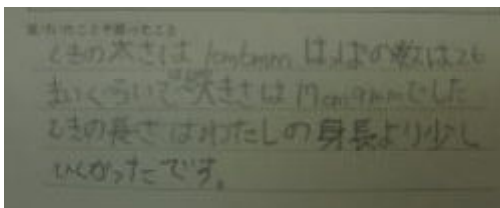 くきの太さは1cm6mmはっぱの数は26
まいくらいで大きさは17cm9mmでした
くきの長さはわたしの身長より少し
ひくかったです。